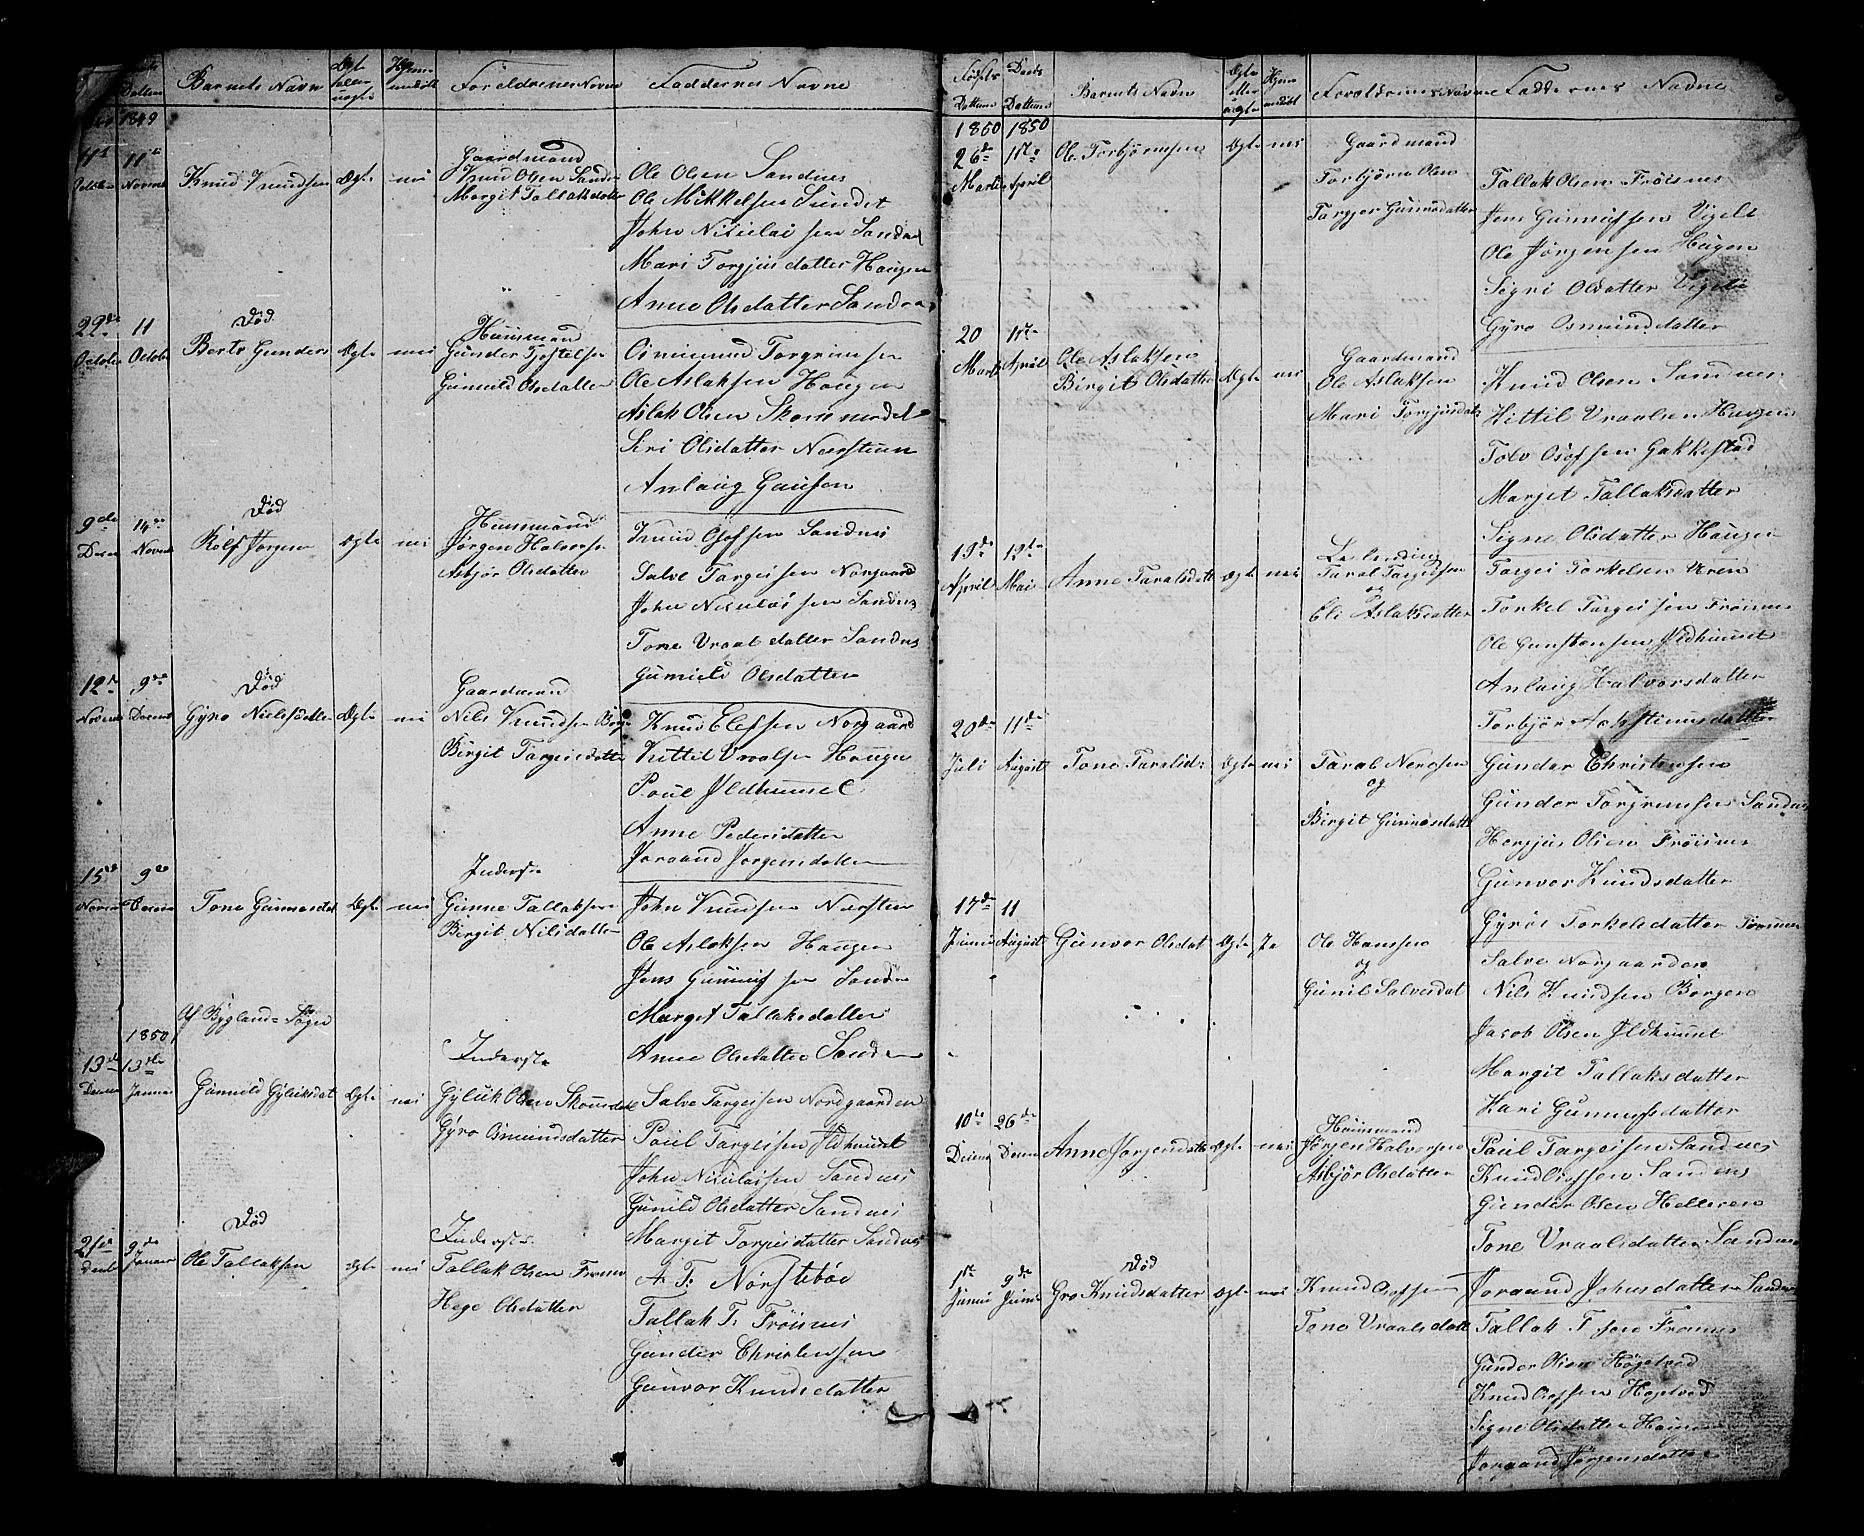 Datten Barnets Navn Ægte eller uægte Hjemmedøbt Foreldrenes Navne Faddernes Navne
1849
11te
Octobr Novbr Knud Knudsen Ægte nei
Gaardmand
Knud Olsen Sandnes
Margit Tallaksdatter
Ole Olsen Sandnes
Ole Mikkelsen Sundet
John Nikulaisen Sandnes
Mari Torgjusdatter Haugen
Anne Olsdatter Sandnes
22de 11
Octobr Octobr
Død
Berte Gunders Ægte nei
Huusmand
Gunder Tjostelsen
Gunuld Olsdatter
Osmund Torgrimsen
Ole Aslaksen Haugen
Aslak Olsen Skommedal
Siri Olsdatter Nærsteen
Anlaug Gausen
9de 14de
Novbr
Død
Rolf Jørgensen Ægte nei
Huusmand
Jørgen Halvorsen
Asbjør Olsdatter
Knud Olofsen Sandnes
Salve Targeisen Norgaard
John Nikulaisen Sandnes
Tone Vraalsdatter Sandnes
Gunuld Olsdatter
12te 9de
Novemb Decemb
Død
Gyro Nielsdatter Ægte nei
Gaardmand
Nils Knudsen Borgen
Birgit Targeisdatter
Knud Olefsen Norgaard
Kittil Vraalsen Haugen
Poul Jldhuuset
Anne Pedersdatter
Joraand Jorgensdatter
15de 9de
Novemb Decemb Tone Gunnesdat Ægte nei
Inderste
Gunne Tallaksen
Birgit Nilsdatter
John Knudsen Nærsten
Ole Aslaksen Haugen
Jens Gunnufsen Sandnes
Margit Tallaksdatter
Anne Olsdatter Sandnes
Af Bygland-Sogn
1850
13de 13de
Decem Januar Gunuld Gyluksdat Ægte nei
Inderste
Gyluk Olsen Skomedal
Gyro Osmundsdatter
Salve Targeisen Nordgaarden
Poul Targeisen Jldhuuset
John Nikulaisen Sandnes
Gunild Olsdatter Sandnes
Margit Torgusdatter Sandnes
21de 9de
Decb Januar
Død
Ole Tallaksen Ægte nei
Inderste
Tallak Olsen Frøisnes
Hege Olsdatter
A. T. Nørstebøe
Tallak T. Frøisnes
Gunder Christensen
Gunvor Knudsdatter
Fødsels Datten Daabs Datten Barnets Navn Ægte eller uægte Hjemmedøbt Foreldrenes Navne Faddernes Navne
1850 1850
26de 11te
Marts April Ole Torbjørnsen Ægte nei
Gaardmand
Torbjørn Olsen
Targjer Gunnesdatter
Tallak Olsen Frøisnes
Jens Gunnufsen Vigeli
Ole Jørgensen Haugen
Signi Olsdatter Vigeli
Gyro Osmundsdatter
20 11te
Marts April
Ole Aslaksen
Birgit Olsdatter Ægte nei
Gaardmand
Ole Aslaksen
Mari Torgjusdatr
Knud Olsen Sandnes
Kittil Vraalsen Haugen
Tolv Olofsen Gakkestad
Margit Tallaksdatter
Signe Olsdatter Haugen
19de 12te
April Mai Anne Taralsdatt Ægte nei
Leilending
Taral Targeisen
og
Eli Aslaksdatter
Targei Torkelsen Uren
Torkel Targeisen Frøisnes
Ole Gunstensen Jldhuuset
Anlaug Halvorsdatter
Torbjør Augustinusdatter
20de 11de
Juli August Tone Taralsd: Ægte nei
Taral Nerosen
og
Birgit Gunnesdatt
Gunder Christensen
Gunder Torgrimsen Sandnes
Horgjus Olsen Frøisnes
Gunvor Knudsdatter
Gyroi Torkelsdatter Frøisnes
17de 11
Junii August Gunvor Olsdat Ægte Ja
Ole Hansen
og
Gunil Salvesdat
Salve Norgaarden
Nils Knudsen Borgen
Jacob Olsen Jldhuuset
Margit Tallaksdatter
Kari Gunnufsdatter
10de 26de
Decem Decem Anne Jorgensdatt Ægte nei
Huusmand
Jørgen Halvorsen
Asbjør Olsdatter
Paul Targeisen Sandnes
Knud Olofsen Sandnes
Gunder Olsen Helleren
Tone Vraalsdatter Sandnes
Joraand Johnsdatter Sandnes
1ste 9de
Junii Junii
Død
Gro Knudsdatter Ægte nei
Knud Olofsen
Tone Vraalsdatt
Tallak Tsen Frøisnes
Gunder Olsen Høgetved
Knud Olofsen Høgetved
Signe Olsdatter Haugen
Joraand Jørgensdatter